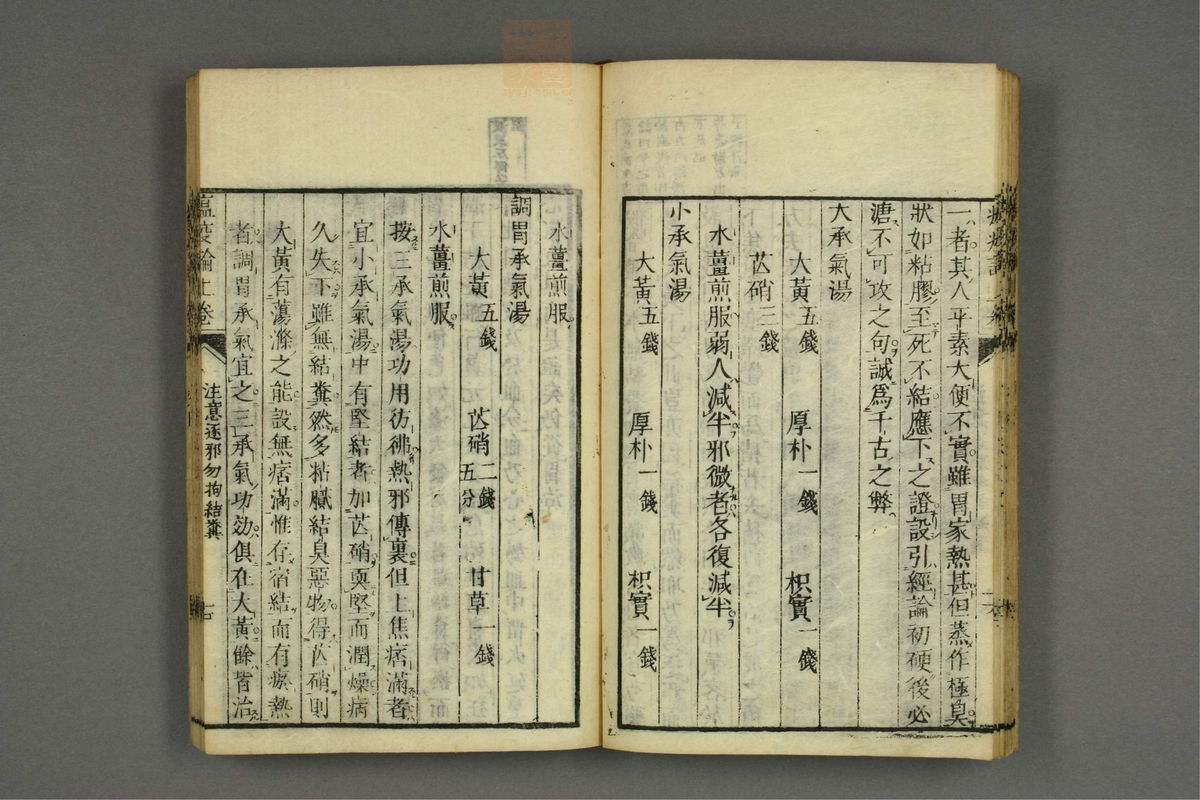 一者其人平素大便不實雖胃家熱甚但蒸作極臭
狀如粘膠至死不結應下之證設引經論初硬後必
溏不可攻之句誠爲千古之弊
大承氣湯
大黃五錢 厚朴一錢 枳實一錢
芒硝三錢
水薑煎服弱人減半邪微者各復減半
小承氣湯
大黃五錢 厚朴一錢 枳實一錢
水薑煎服
調胃承氣湯
大黃五錢 芒硝二錢五分 甘草一錢
水薑煎服
按三承氣湯功用彷彿熱邪傳裏但上焦痞滿者
宜小承氣湯中有堅結者加芒硝耎堅而潤燥病
久失下雖無結糞然多粘膩結臭惡物得芒硝則
大黃有蕩滌之能設無痞滿惟存宿結而有瘀熱
者調胃承氣宜之三承氣功効俱在大黃餘皆治
瘟疫論上卷 注意逐邪勿拘結糞